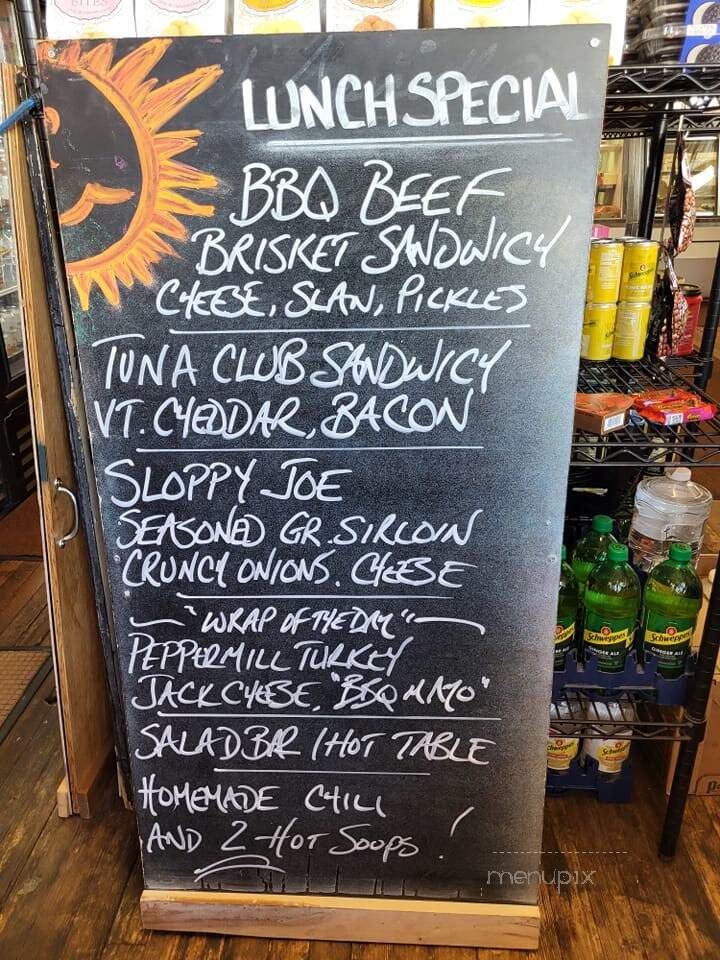 BITES
LUNCH SPECIAL
BBQ BEEF
BRISKET SANDWICH
CHEESE, SLAW, PICKLES
TUNA CLUB SANDWICH
VT. CHEDDAR, BACON
SLOPPY JOE
SEASONED GR. SIRLOIN
CRUNCHY ONIONS. CHEESE
"WRAP OF THE DAY"
PEPPERMILL TURKEY
JACK CHEESE, "BBQ MAYO"
SALAD BAR / HOT TABLE
HOMEMADE CHILI
AND 2 HOT SOUPS!
Schweppes
Schweppes
GINGER ALE
Schweppes
GINGER ALE
menupix